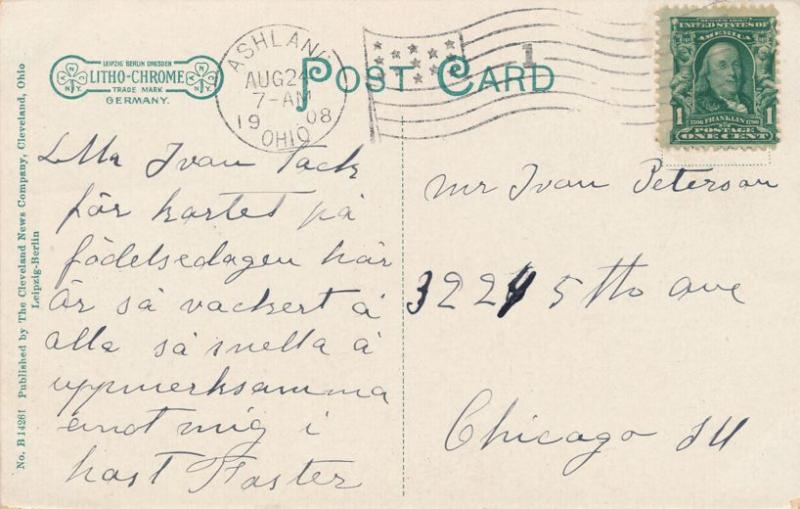 LEIPZIG BERLIN DRESDEN
LITHO-CHROME
TRADE MARK
GERMANY.
N.Y.
N.Y.
ASHLAND
AUG 24
7-AM
1908
OHIO
POST CARD
1
UNITED STATES OF
AMERICA
1
1
FRANKLIN
POSTAGE
ONE CENT
No. B 14261 Published by The Cleveland News Company, Cleveland, Ohio
Leipzig-Berlin
Ivan Tack
för kortet på
födelsedagen här
är så vackert å
alla så snella å
uppmerksamma
emot mig i
hast Faster
Mr Ivan Peterson
3224 5th ave
Chicago Ill